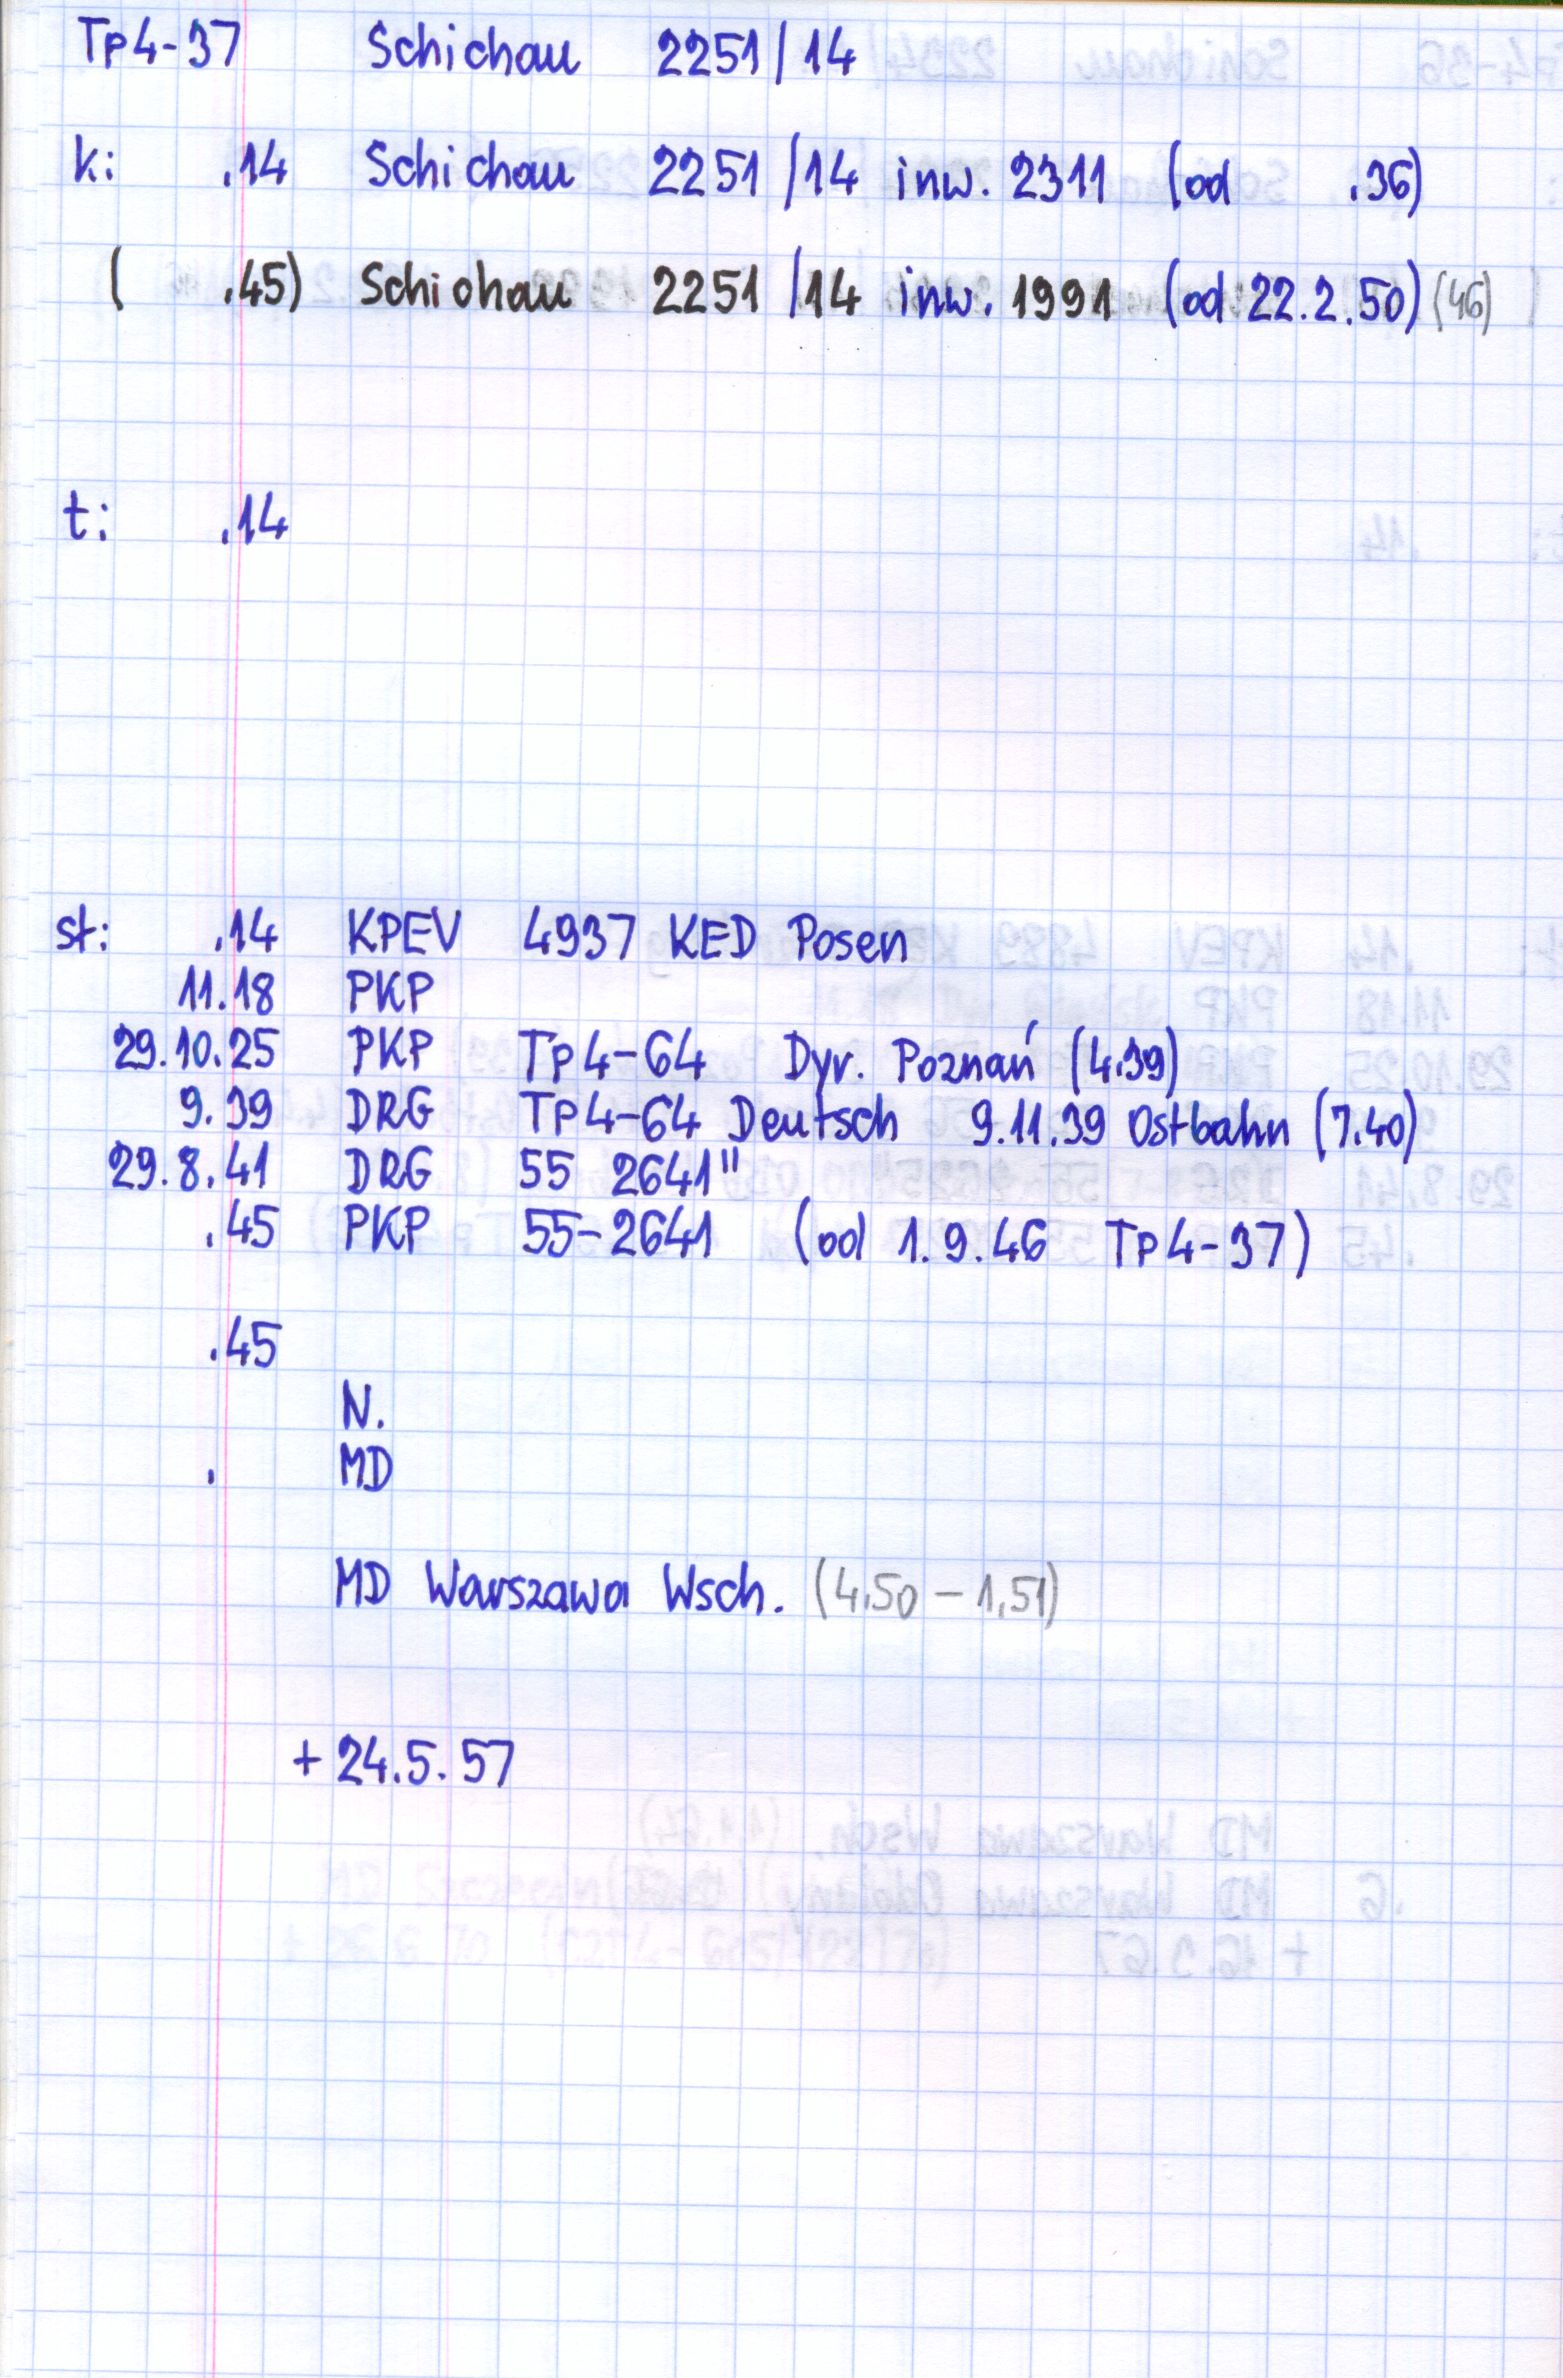 Tp4-37 Schichau 2251/14
k: .14 Schichau 2251/14 inw. 2311 (od .36)
( .45) Schichau 2251/14 inw. 1991 (od 22.2.50) (46)
t: .14
st: .14 KPEV 4937 KED Posen
11.18 PKP
29.10.25 PKP Tp4-64 Dyr. Poznań (4.39)
9.39 DRG Tp4-64 Deutsch 9.11.39 Ostbahn (7.40)
29.8.41 DRG 55 2641"
.45 PKP 55-2641 (od 1.9.46 Tp4-37)
.45
N.
. MD
MD Warszawa Wsch. (4.50 - 1.51)
+ 24.5.57